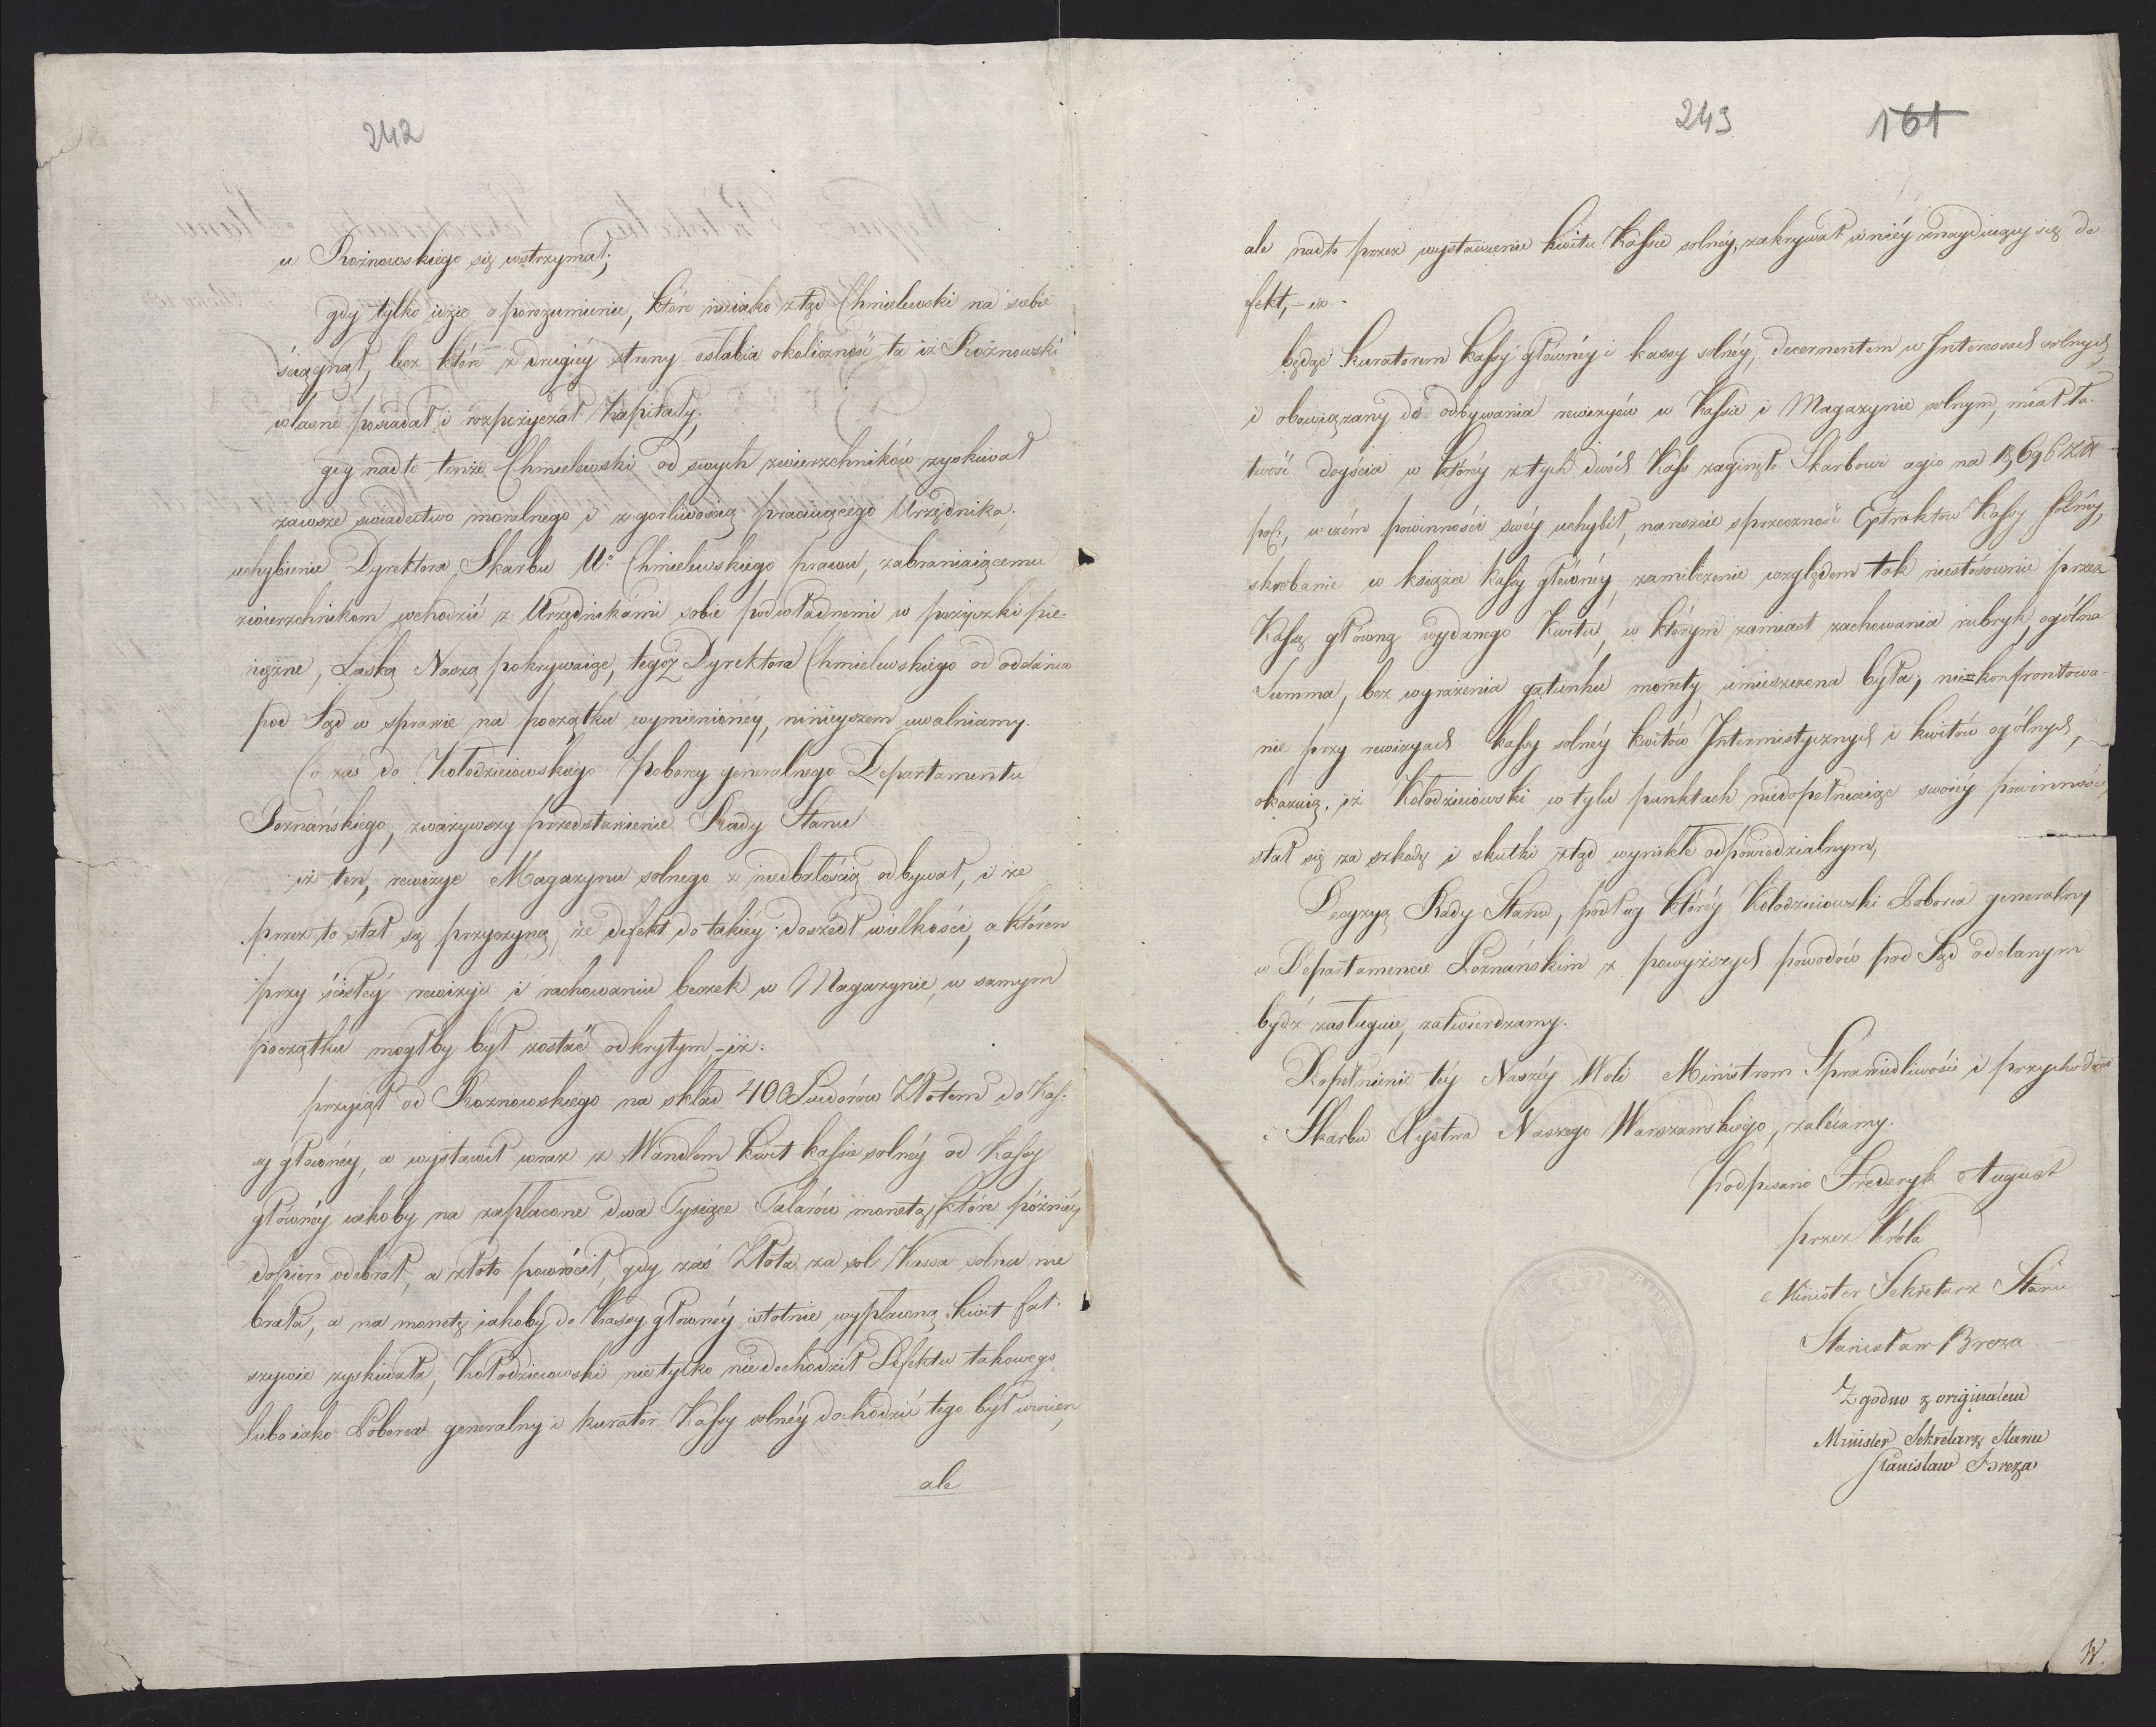 242
u Rożnowskiego się wstrzymał;
gdy tylko idzie o porozumienie, które nieiako ztąd Chmielewski na siebie
ściągnął, lecz które z drugiéy strony osłabia okoliczność ta iż Rożnowski
własne posiadał i rozpożyczał Kapitały;
gdy nadto tenże Chmielewski od swych zwierzchników zyskiwał
zawsze świadectwo moralnego i z gorliwością pracuiącego Urzędnika;
uchybienie Dyrektora Skarbu Uo Chmielewskiego prawu, zabraniaiącemu
zwierzchnikom wchodzić z Urzędnikami sobie podwładnemi w pożyczki pie-
niężne, Łaską Naszą pokrywaiąc, tegoż Dyrektora Chmielewskiego od oddania
pod Sąd w sprawie na początku wymienionéy, ninieyszem uwalniamy.
Co zaś do Kołodzieiowskiego Poborcy generalnego Departamentu
Poznańskiego, zważywszy przedstawienie Rady Stanu
iż ten, rewizye Magazynu solnego z niedbałością odbywał, i że
przez to stał się przyczyną, iż defekt do takiéy doszedł wielkości, a któren
przy ścisłéy rewizyi i rachowaniu beczek w Magazynie, w samym
początku mogłby był zostać odkrytym, - iż:
przyiął od Roznowskiego na skład 400 Luidorów Złotem do Kas-
sy głównéy, a wystawił wraz z Wandlem kwit kassie solnéy od Kassy
głównéy iakoby na zapłacone dwa Tysiące Talarów monetą, które późniéy
dopiero odebrał, a złoto powrócił, gdy zaś Złota za sól Kassa solna nie
brała, a na monetę iakoby do Kassy głównéy istotnie wypłaconą kwit fał-
szywie zyskiwała, Kołodzieiowski nie tylko nie dochodził Defektu takowego
lubo iako Poborca generalny i kurator Kassy solnéy dochodzić tego był winien,
ale
243 161
ale nadto przez wystawienie kwitu Kassie solnéy, zakrywał w niéy znayduiący się de
fekt, - iż -
będąc kuratorem kassy głównéy i kassy solnéy, decernentem w Interessach solnych,
i obowiązany do odbywania rewizyów w Kassie i Magazynie solnym, miał ła-
twość doyścia w któréy z tych dwóch Kass zaginęło Skarbowi agio na 13,696 złtr
pol:, w czém powinności swéy uchybił, nareszcie sprzeczność Extraktów Kassy solnéy,
skrobanie w książce Kassy głównéy, zamilczenie względem tak niestosownie przez
Kassę główną wydanego Kwitu, w którym zamiast zachowania rubryk, ogólna
Summa, bez wyrażenia gatunku monety, umieszczona była, nie=konfrontowa-
nie przy rewizyach kassy solnéy kwitów Intermistycznych i kwitów ogólnych,
okazuią, iż Kołodzieiowski w tylu punktach niedopełniaiąc swoiéy powinności,
stał się za szkodę i skutki ztąd wynikłe odpowiedzialnym,
Decyzyą Rady Stanu, podług któréy Kołodzieiowski Poborca generalny
w Departamencie Poznańskim z powyższych powodów pod Sąd oddanym
bydź zasługuie, zatwierdzamy.
Dopełnienie téy Naszéy Woli Ministrom Sprawiedliwości i przychodów
i Skarbu Xięstwa Naszego Warszawskiego, zalécamy.
podpisano Frederyk August
przez Króla
Minister Sekretarz Stanu
Stanisław Breza
Zgodno z originałem
Minister Sekretarz Stanu
Stanisław Breza
W.